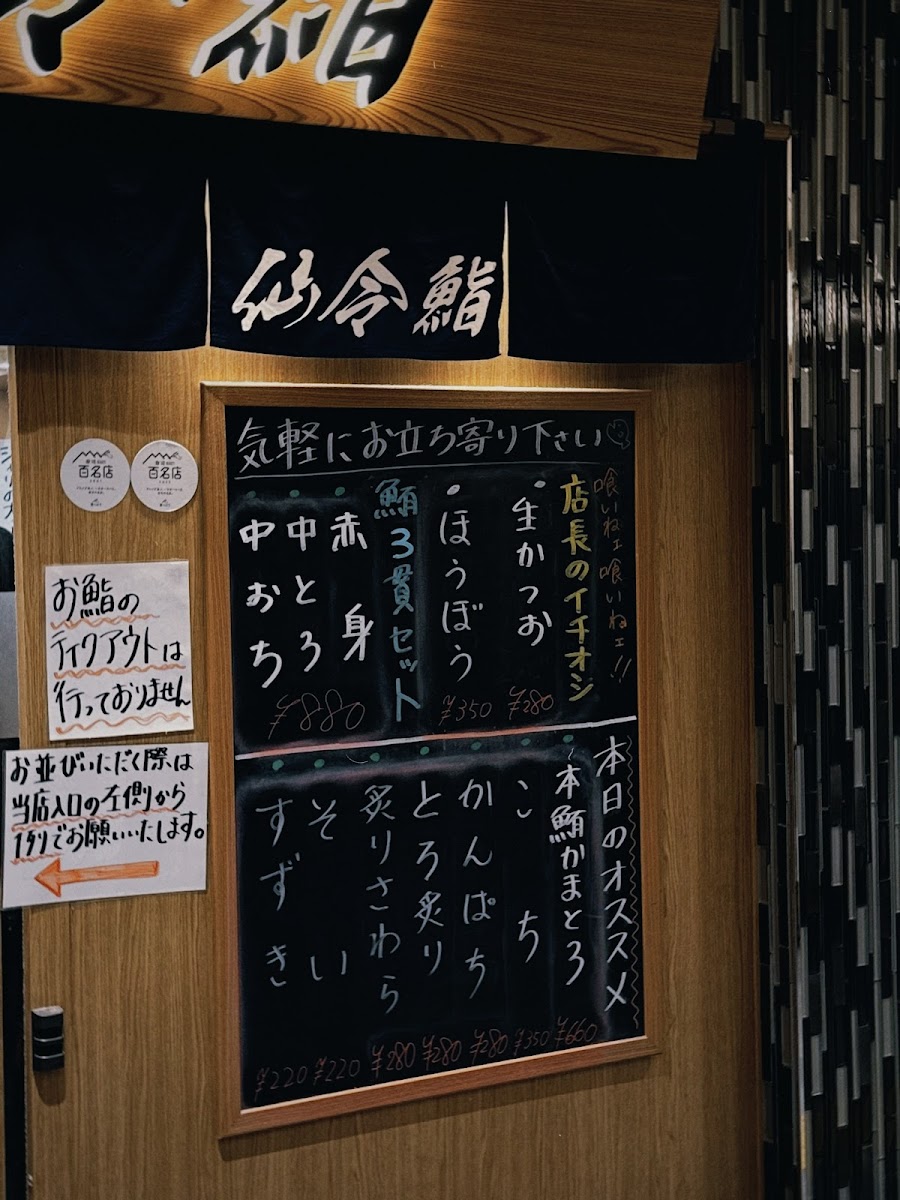 鮨
仙令鮨
気軽にお立ち寄り下さい
喰いねェ喰いねェ!!
店長のイチオシ
生かつお
¥280
ほうぼう
¥350
鮪3貫セット
赤身
中とろ
中おち
¥880
本日のオススメ
本鮪かまとろ
¥660
こち
¥350
かんぱち
¥280
とろ炙り
¥280
炙りさわら
¥280
そい
¥220
すずき
¥220
百名店
百名店
お鮨の
テイクアウトは
行っておりません
お並びいただく際は
当店入口の左側から
1列でお願いいたします。